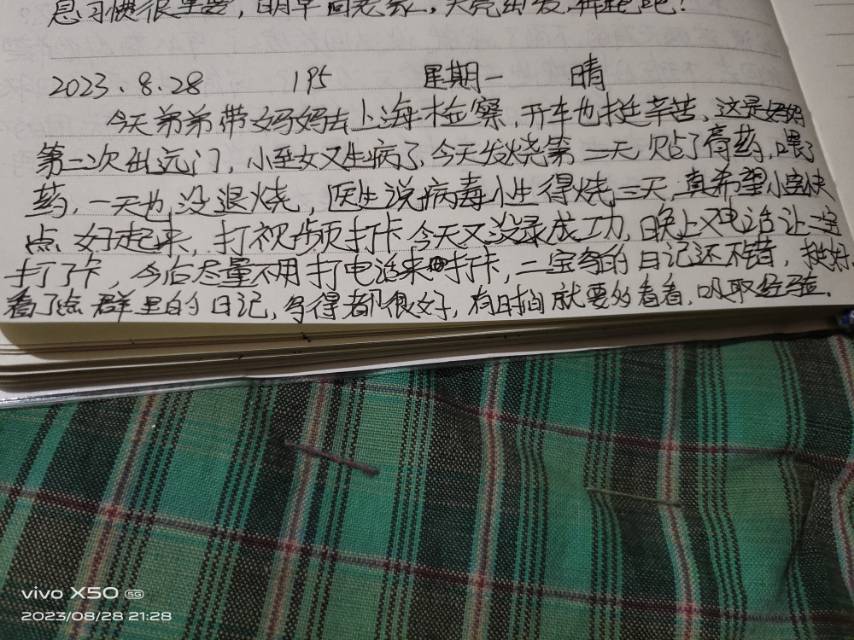 息习惯很重要,明早回老家,天亮出发,奔跑吧!
2023.8.28 195 星期一 晴
今天弟弟带妈妈去上海检察,开车也挺辛苦,这是妈妈
第二次出远门,小至女又生病了,今天发烧第二天,贴了膏药,喂了
药,一天也没退烧,医生说病毒小生得烧三天,真希望小宝快
点好起来,打视频打卡今天又没录成功,晚上又电话让二宝
打了卡,今后尽量不用打电话来打卡,二宝写的日记还不错,挺好.
看了点群里的日记,写得都很好,有时间就要多看看,吸取经验.
vivo X50 5G
2023/08/28 21:28